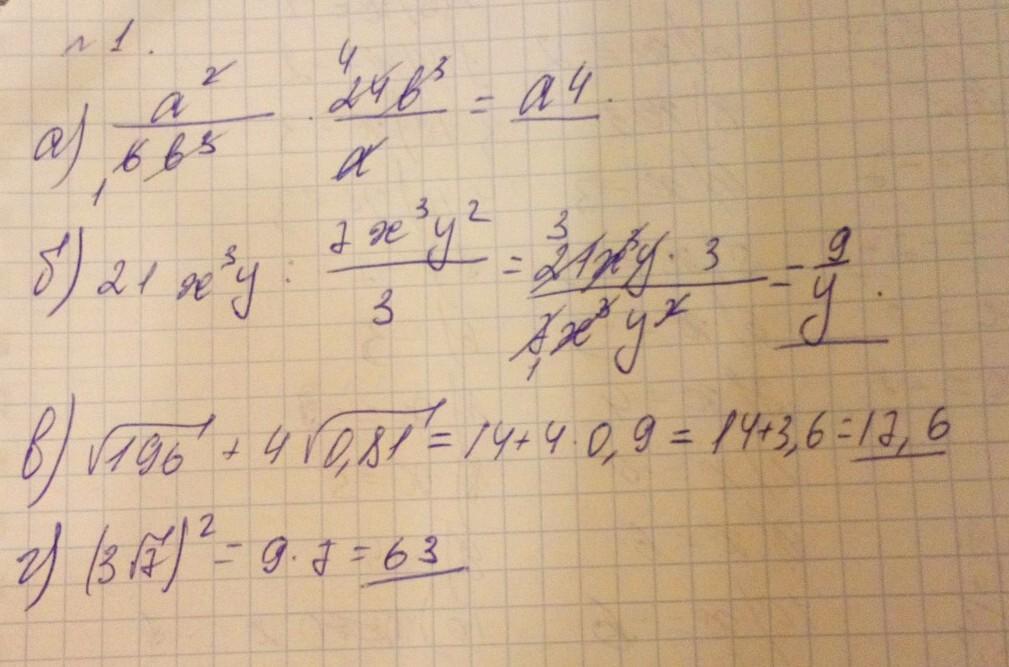 №1.
а) a²/6b³ · 24b³/a = a4.
4
1
б) 21x³y : 7x³y²/3 = 21x³y · 3/7x³y² = 9/y.
3
1
в) √196 + 4√0,81 = 14+4·0,9 = 14+3,6=17,6
г) (3√7)² = 9·7=63